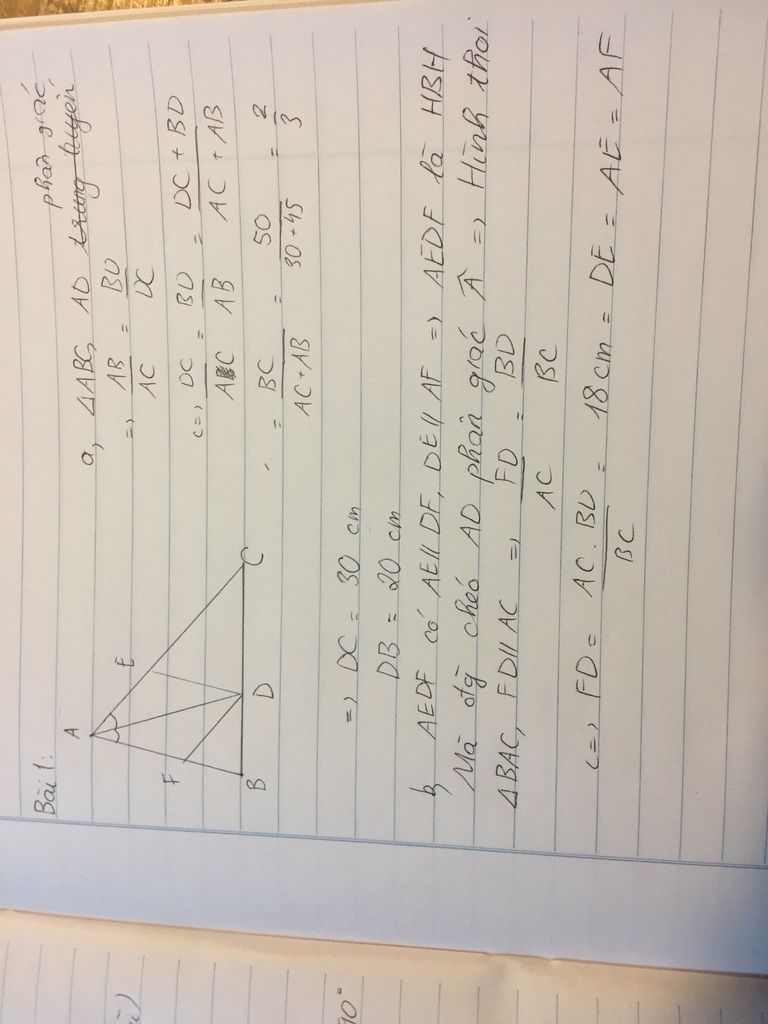 Bài 1:
A
E
F
B
D
C
phân giác
a, ΔABC, AD trung tuyến
=> AB/AC = BD/DC
<=> DC/AC = BD/AB = DC + BD/AC + AB
= BC/AC+AB = 50/30+45 = 2/3
=> DC = 30 cm
DB = 20 cm
b, AEDF có AE//DF, DE//AF => AEDF là HBH
Mà đg chéo AD phân giác Â => Hình thoi
ΔBAC, FD//AC => FD/AC = BD/BC
<=> FD = AC . BD/BC = 18 cm = DE = AE = AF
90°